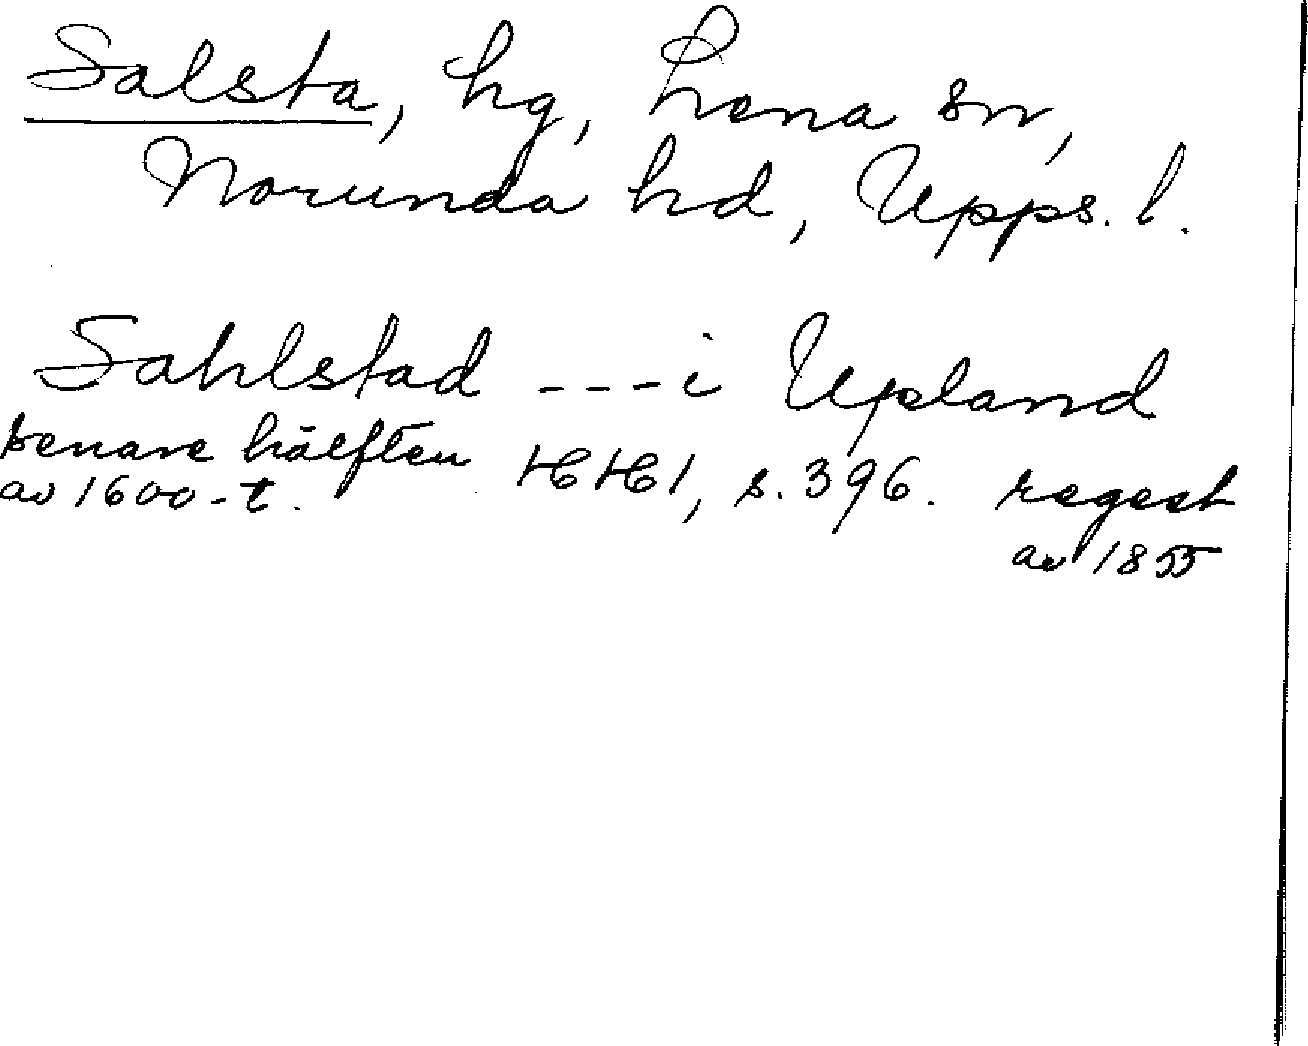 Salsta, hg, Lena sn,
Norunda hd, Upps. l.
Sahlstad ---i Upland
senare hälften HH1, s.396. regest
av 1600-t. av 1855